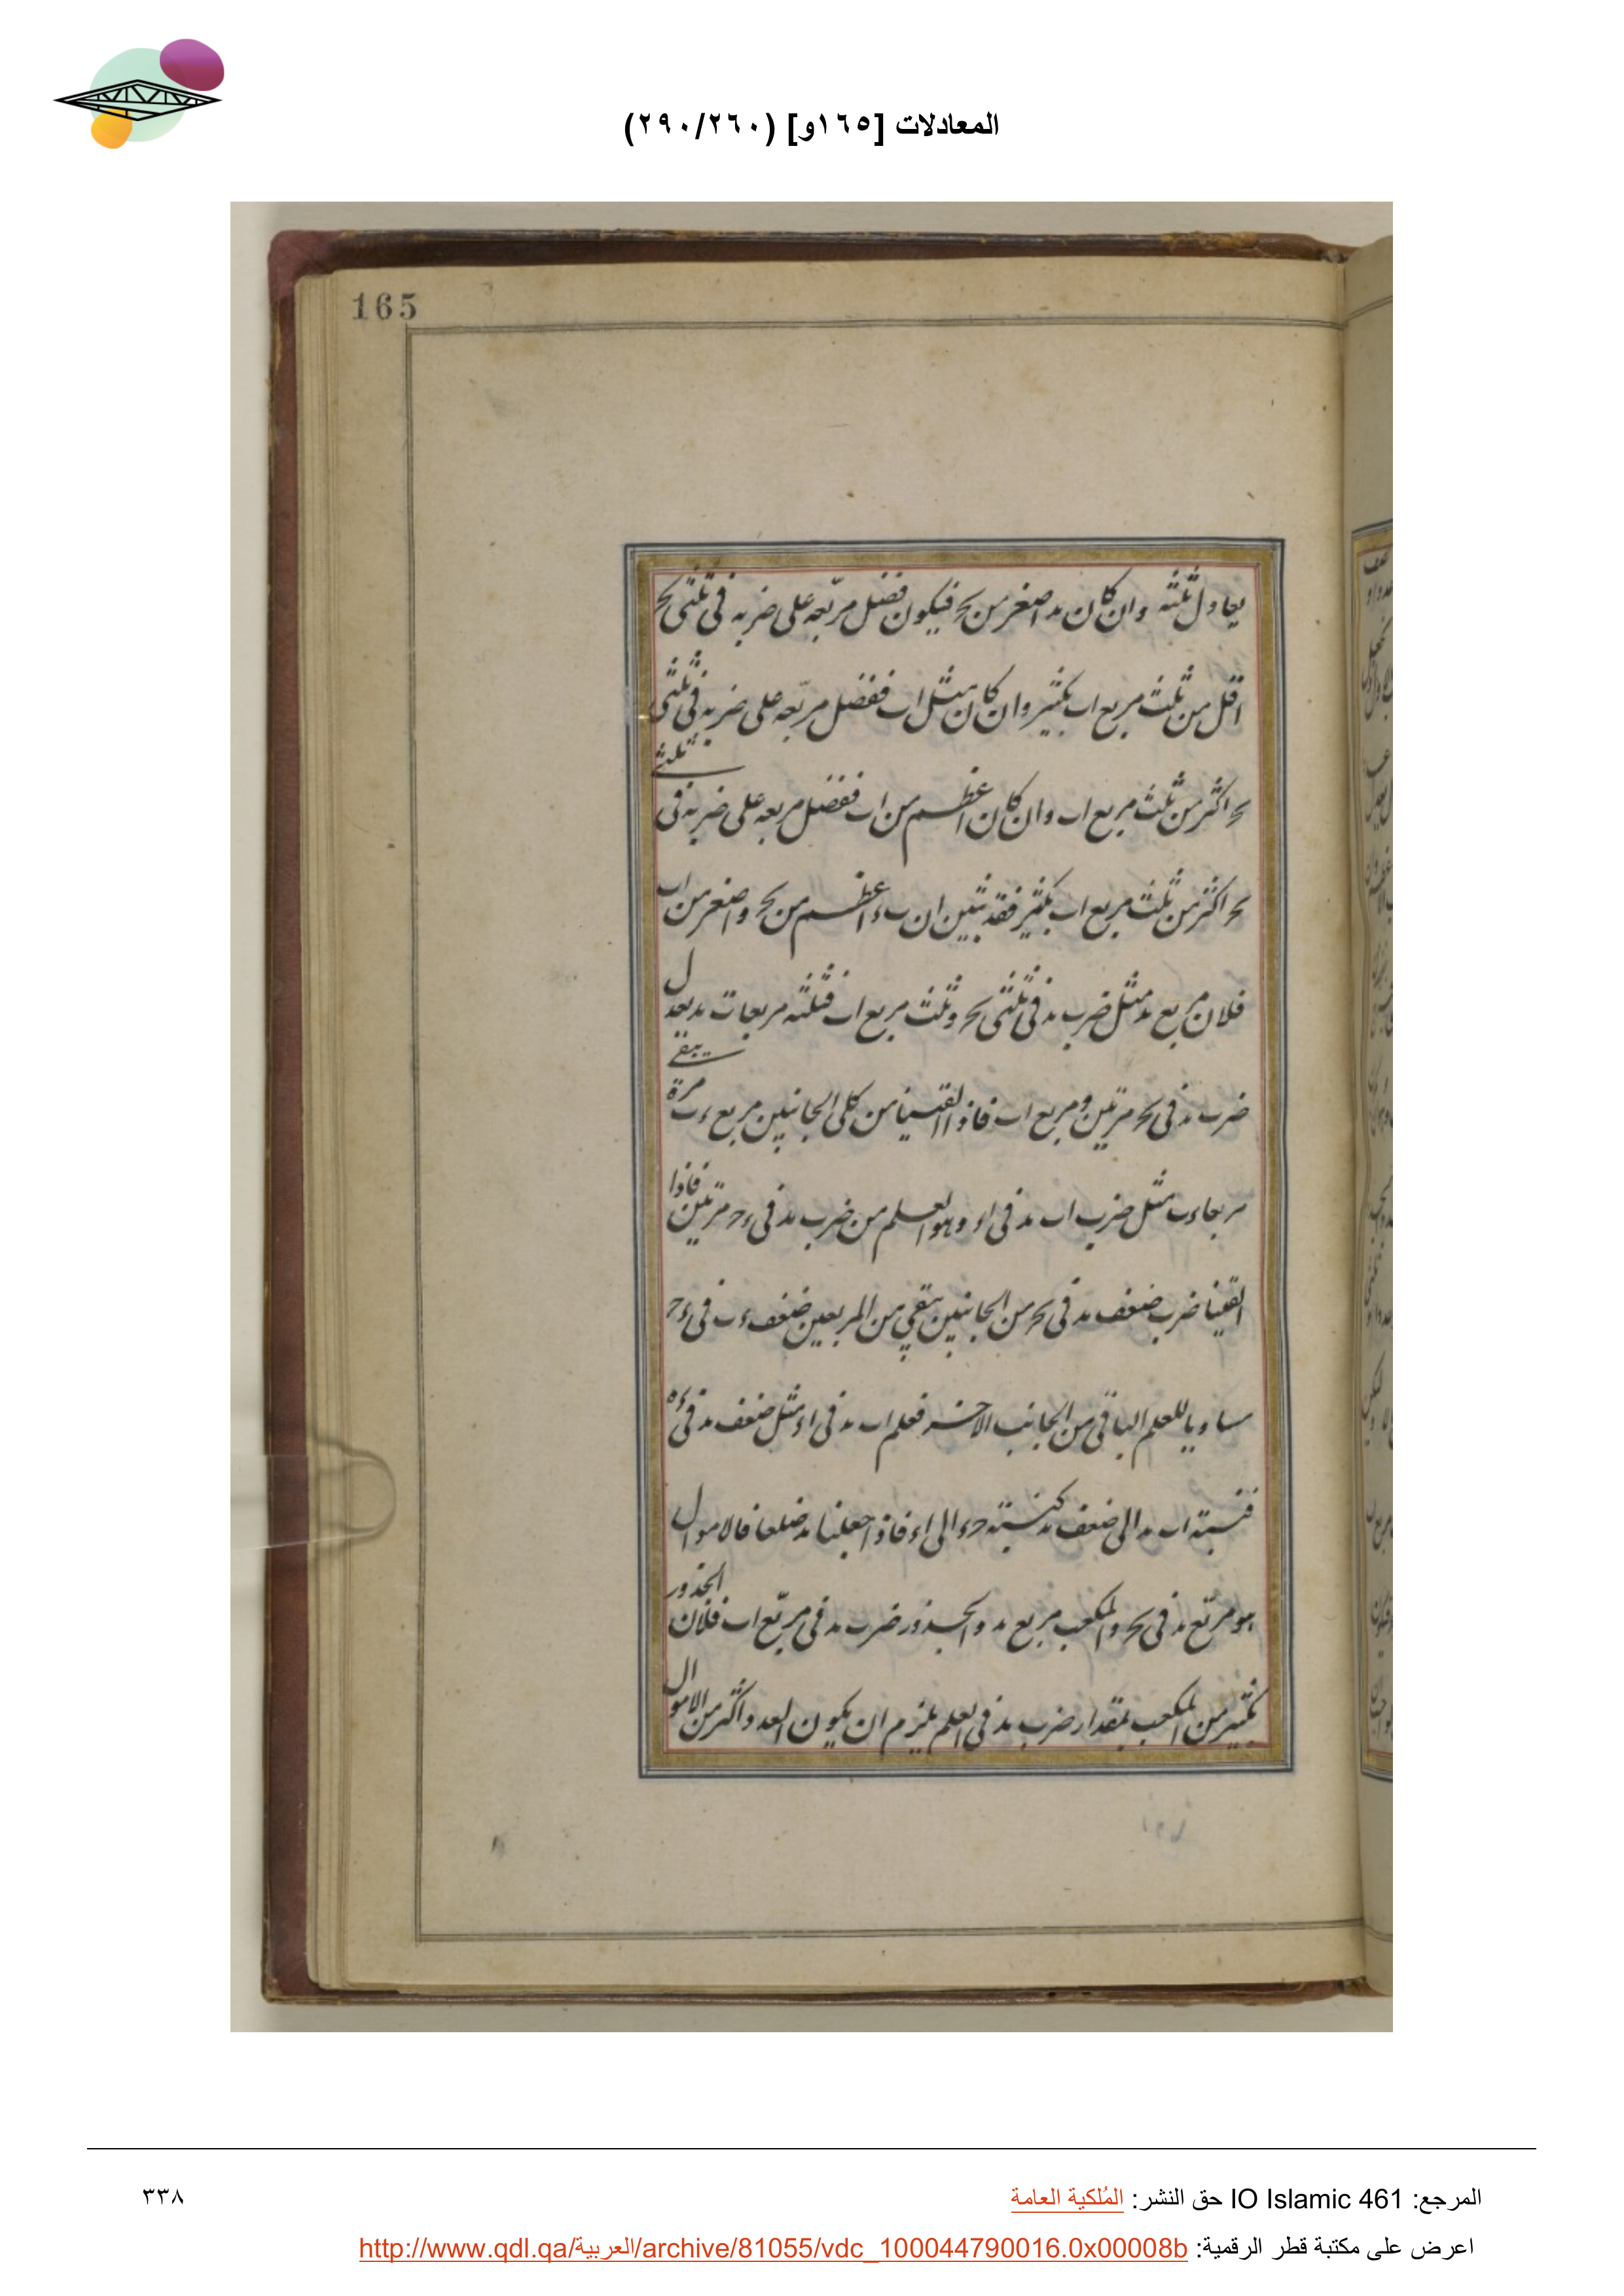 المعادلات [١٦٥و] (٢٩٠/٢٦٠)
165
يعادل ثلثه وان كان ىد اصغر من ىح فيكون فضل مربّعه على ضربه فى ثلثى ىح
اقل من ثلث مربع اب بكثير وان كان مثل اب ففضل مربّعه على ضربه فى ثلثى
ىح اكثر من ثلث مربع اب وان كان اعظم من اب ففضل مربعه على ضربه فى ثلثى
ىح اكثر من ثلث مربع اب بكثير فقد تبين ان اعظم من ىح واصغر من اب
فلان مربع ىد مثل ضرب ىد فى ثلثى ىح وثلث مربع اب فثلثه مربعات ىد يعدل
ضرب ىد فى ىح مرتين ومربع اب فاذا القينا من كلى الجانبين مربع ء ب مرة يبقى
مربعا ء ب مثل ضرب اب ىد فى اء وهو العلم من ضرب ىد فى ء ح مرتين فاذا
القينا ضرب ضعف ىد فى ىح من الجانبين يبقى من المربعين ضعف ء ب فى ء ح
مساويا للعلم الباقى من الجانب الاخر فعلم اب ىد فى اء مثل ضعف ىد فى ء ح
فنسبة اب ىد الى ضعف ىد كنسبة ح ء الى اء فاذا جعلنا ىد ضلعا فالاموال
هو مربّع ىد فى ىح والمكعب مربع ىد والجذور ضرب ىد فى مربّع اب فلان الجذور
بكثير من المكعب بمقدار ضرب ىد فى العلم يلزم ان يكون العدد اكثر من الاموال
المرجع: IO Islamic 461 حق النشر: المُلكية العامة
٣٣٨
اعرض على مكتبة قطر الرقمية: http://www.qdl.qa/العربية/archive/81055/vdc_100044790016.0x00008b